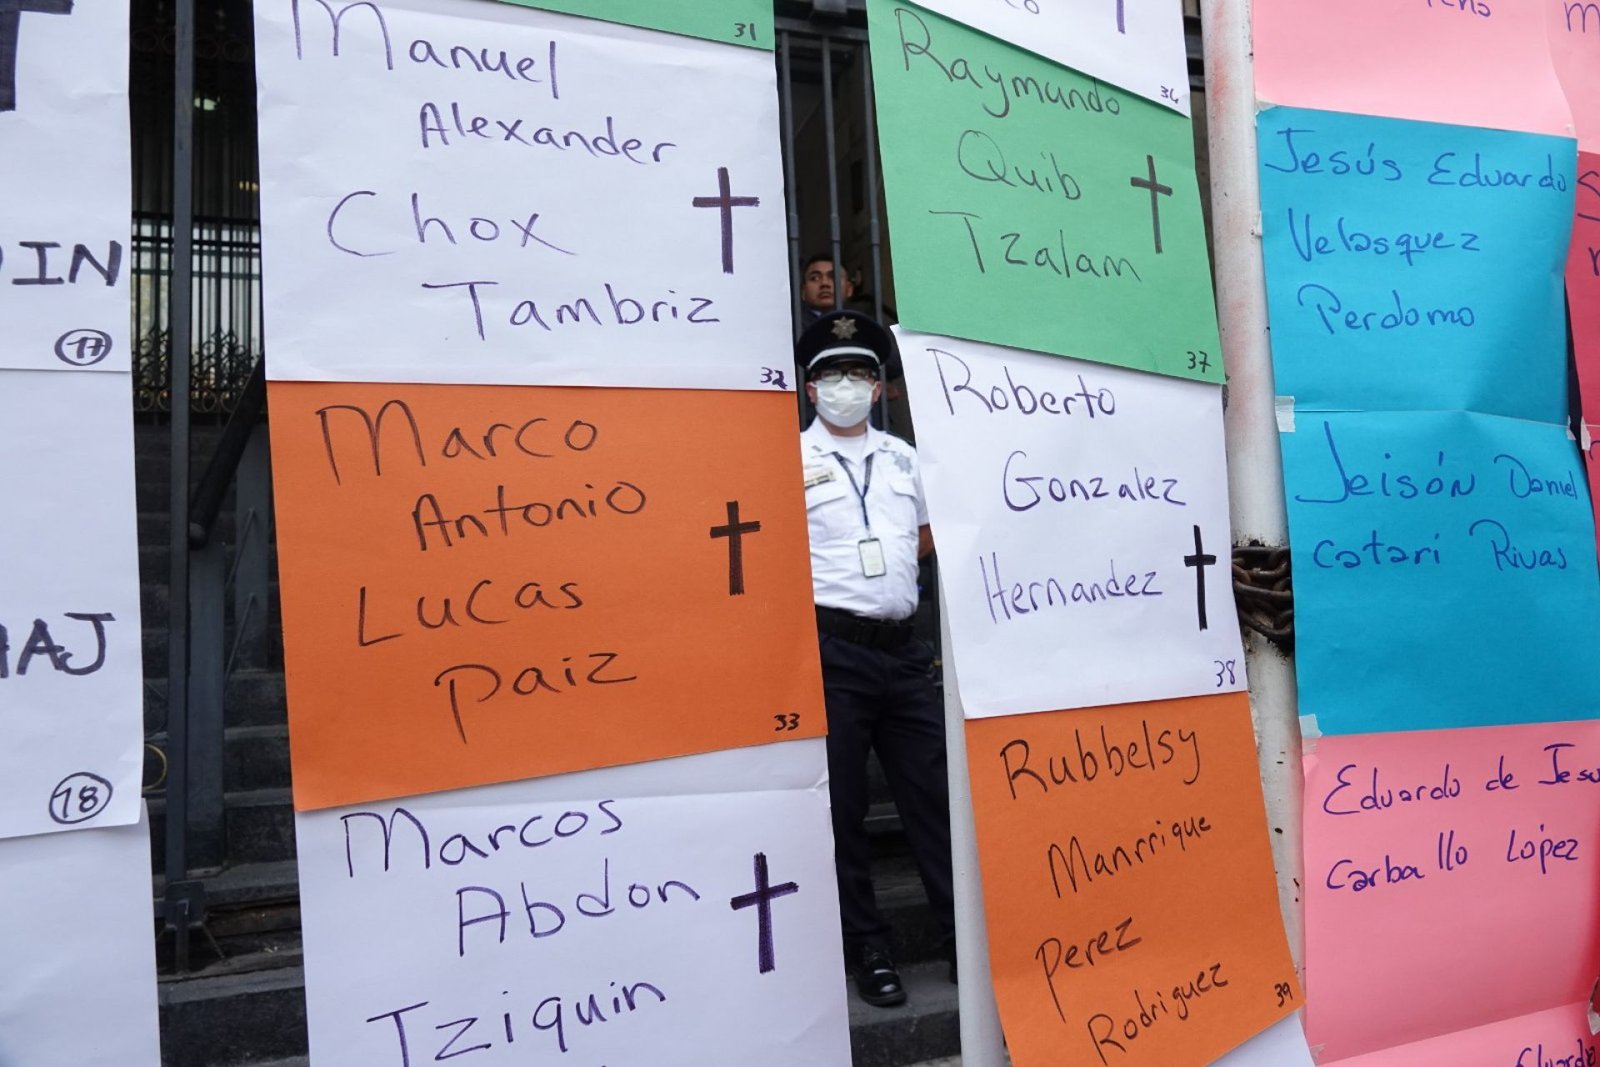 IN
17
AJ
18
31
Manuel
Alexander
Chox
Tambriz
32
Marco
Antonio
Lucas
Paiz
33
Marcos
Abdon
Tziquin
36
Raymundo
Quib
Tzalam
37
Roberto
Gonzalez
Hernandez
38
Rubbelsy
Manrrique
Perez
Rodriguez
39
Jesús Eduardo
Velasquez
Perdomo
Jeisón Daniel
Catarí Rivas
Eduardo de Jesu
Carballo López
Eduardo